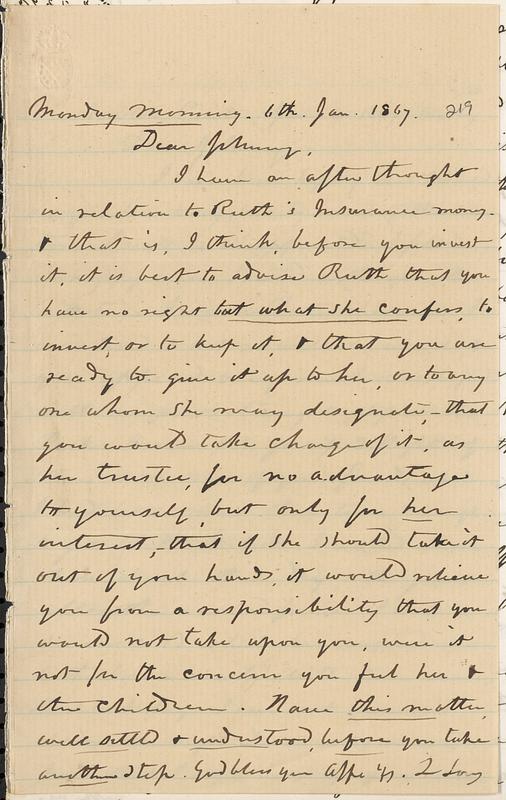 Monday Morning. 6th. Jan. 1867. 219
Dear Johnny,
I have an after thought
in relation to Ruth's Insurance money.
& that is, I think, before you invest
it, it is best to advise Ruth that you
have no right but what she confers, to
invest, or to keep it, & that you are
ready to give it up to her, or to any
one whom she may designate, - that
you would take charge of it, as
her trustee, for no advantage
to yourself, but only for her
interest, - that if she should take it
out of your hands, it would relieve
you from a responsibility that you
would not take upon you, were it
not for the concern you feel her &
the children. Have this matter
well settled & understood, before you take
another step. God bless you Affe yr.